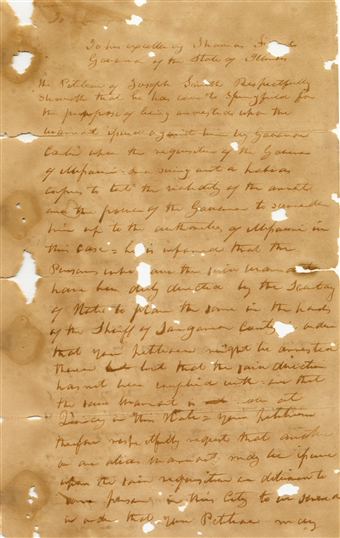 To his excellency Thomas Ford
Governor of the State of Illinois
The Petition of Joseph Smith Respectfully
sheweth that he has come to Springfield for
the purpose of being arrested upon the
warrant issued against him by Governor
Carlin upon the requisition of the Governor
of Missouri and suing out a habeas
corpus to test the validity of the arrest
and the power of the Governor to surrender
him up to the authorities of Missouri in
this case; he is informed that the
Persons who have the said warrant
have been duly directed by the Secretary
of State to place the same in the hands
of the Sheriff of Sangamon County in order
that your petitioner might be arrested
thereon but that the said direction
has not been complied with and that
the said Warrant is now at
Quincy in this State your petitioner
therefore respectfully request that another
or an alias warrant may be issued
upon the said requisition and delivered to
some person in this City to be served
in order that your Petitioner may